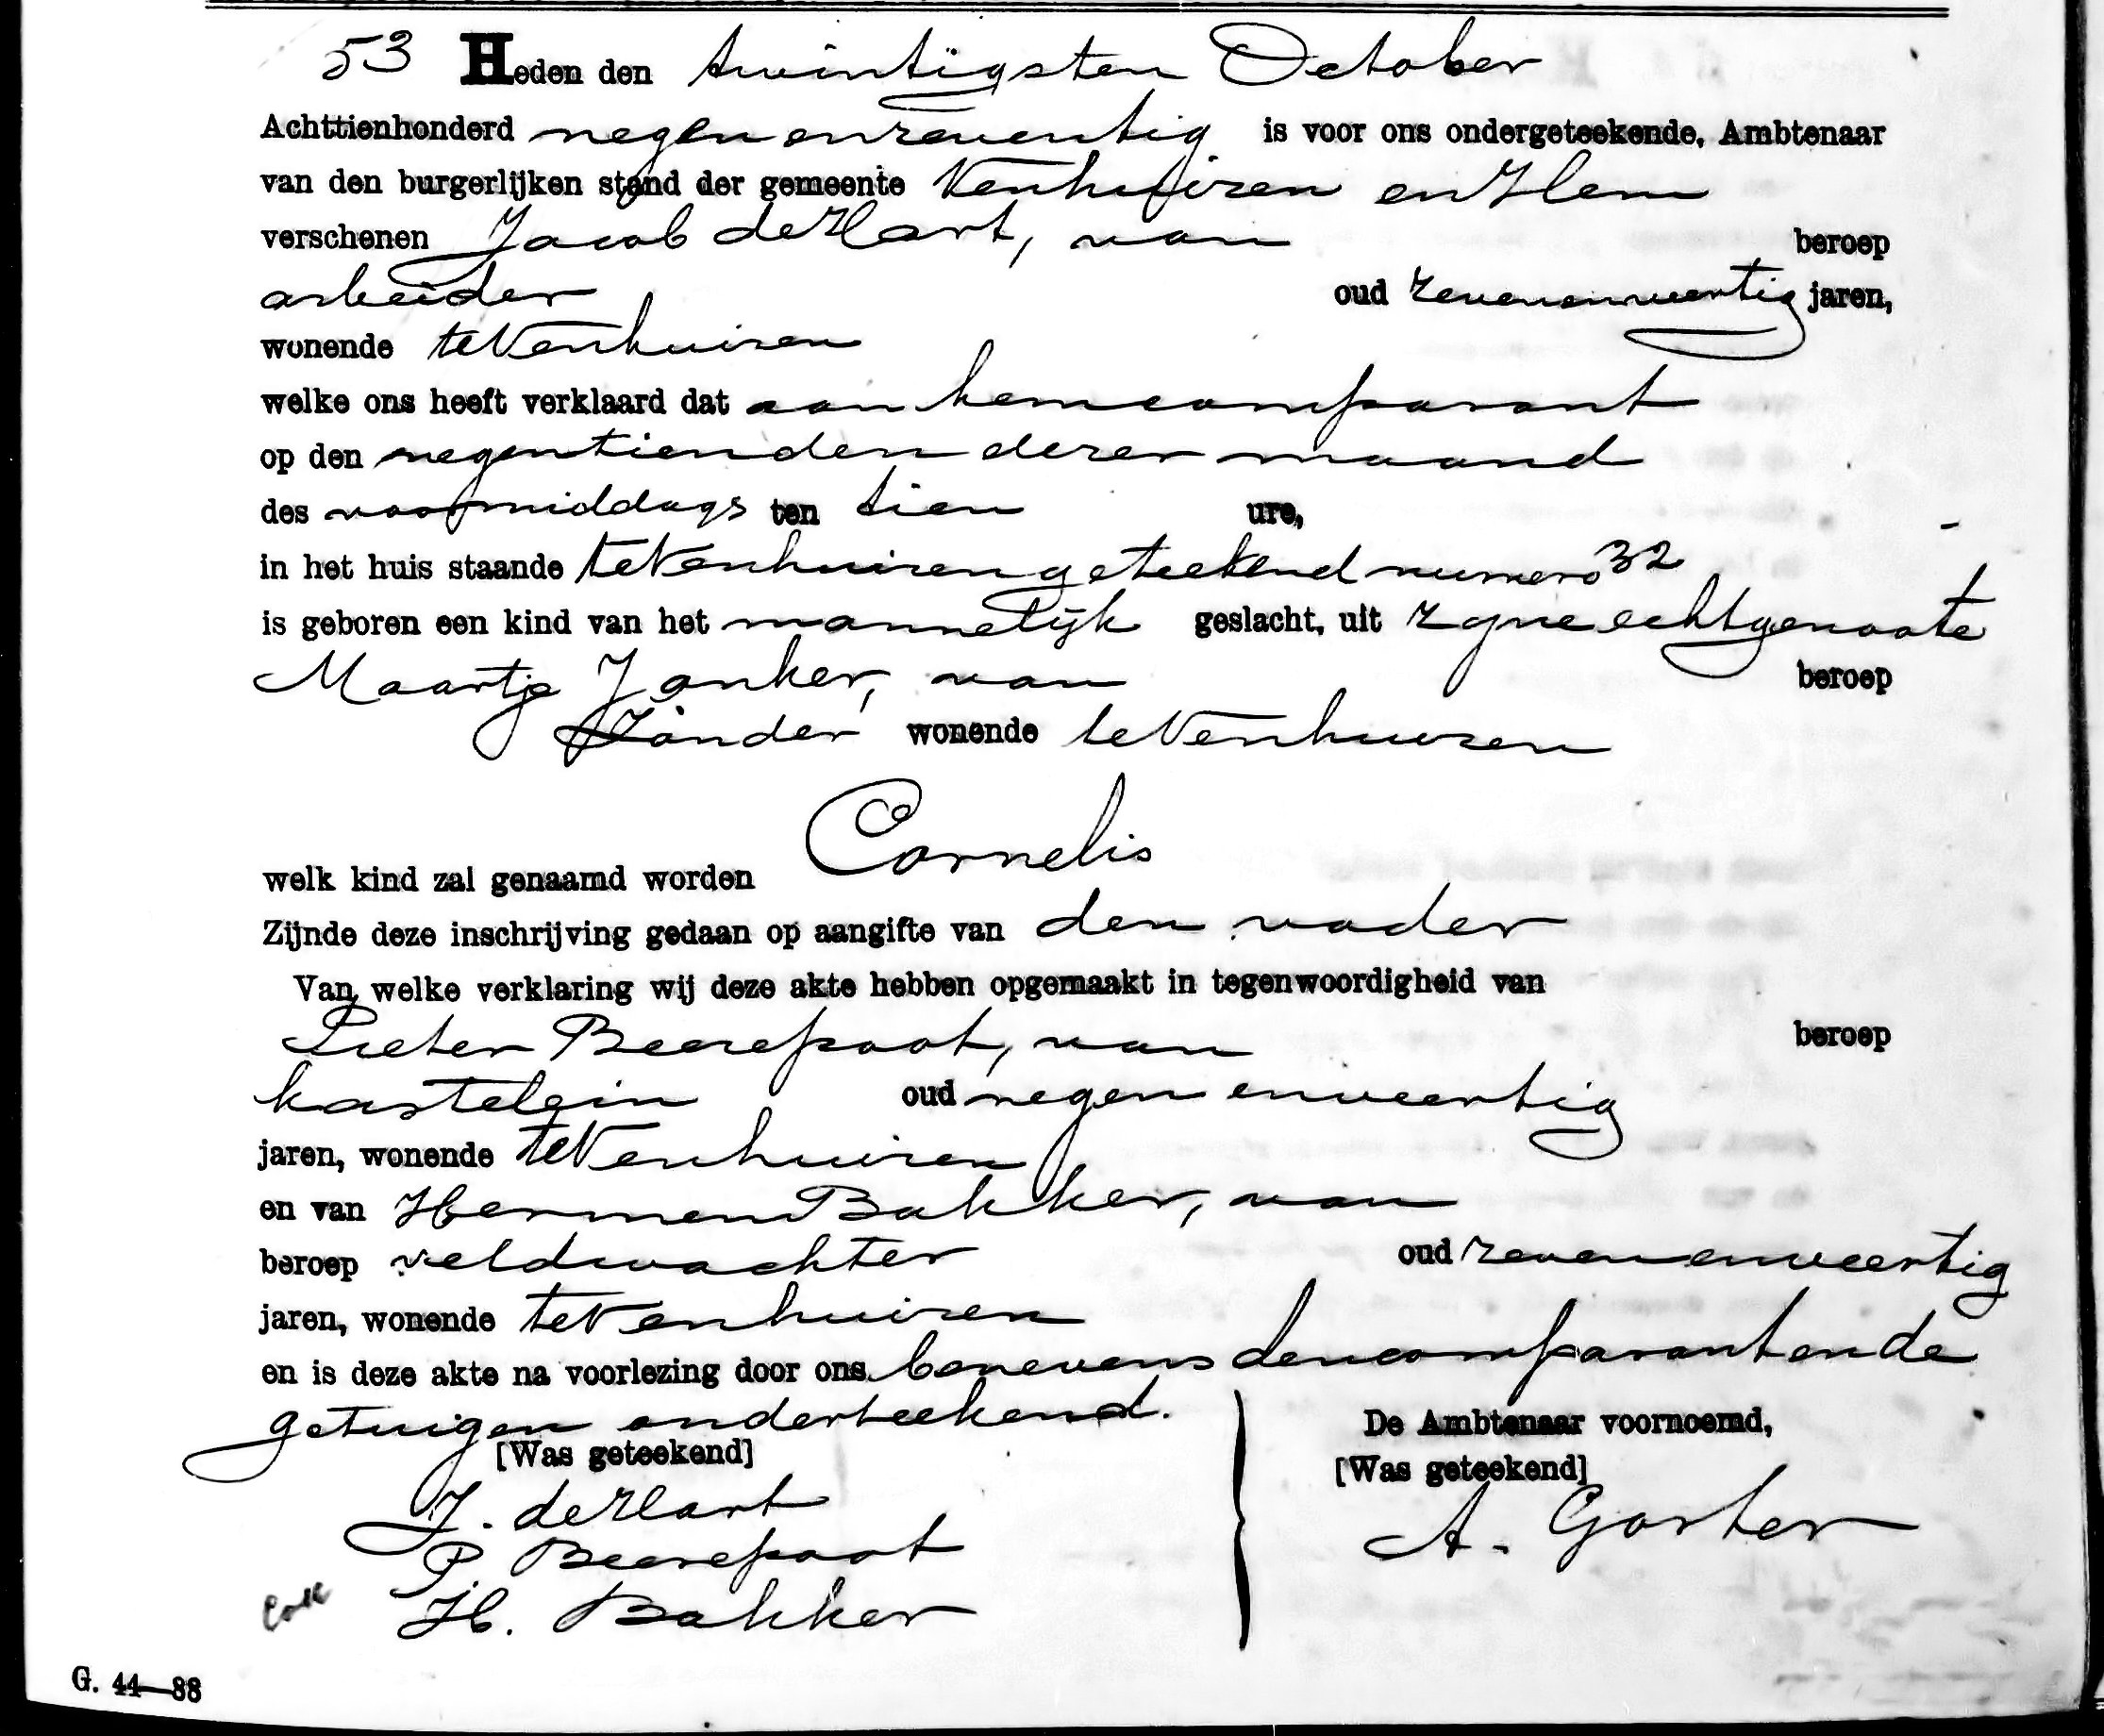 53 Heden den twintigsten October
Achttienhonderd negen en zeventig is voor ons ondergeteekende, Ambtenaar
van den burgerlijken stand der gemeente Venhuizen en Hem
verschenen Jacob de Hart, van beroep
arbeider oud zevenenveertig jaren,
wonende te Venhuizen
welke ons heeft verklaard dat aan hem comparant
op den negentienden dezer maand
des voormiddags ten tien ure,
in het huis staande te Venhuizen geteekend numero 32
is geboren een kind van het mannelijk geslacht, uit zijne echtgenoote
Maartje Jonker, van beroep
Zonder wonende te Venhuizen
Cornelis
welk kind zal genaamd worden
Zijnde deze inschrijving gedaan op aangifte van den vader
Van welke verklaring wij deze akte hebben opgemaakt in tegenwoordigheid van
Pieter Beerepoot, van beroep
kastelein oud negen en veertig
jaren, wonende te Venhuizen
en van Hermen Bakker, van
beroep veldwachter oud zeven en veertig
jaren, wonende te Venhuizen
en is deze akte na voorlezing door ons benevens den comparant en de
getuigen onderteekend.
De Ambtenaar voornoemd,
[Was geteekend] [Was geteekend]
J. de Hart
A. Gorter
P. Beerepoot
H. Bakker
G. 44—88